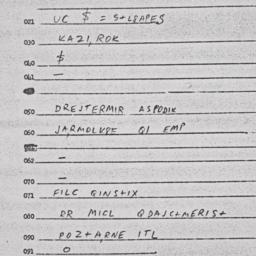 021 UC $ = S+LRAPES
030 KAZI, ROK
040 $
041 —
050 DREJTERMIR ASPODIK
060 JARMOLVDE QI EMP
062 —
070 —
071 FILC QINS+IX
080 DR MICL QDAJC+MERIS+
090 POZ+ARNE ITL
091 O